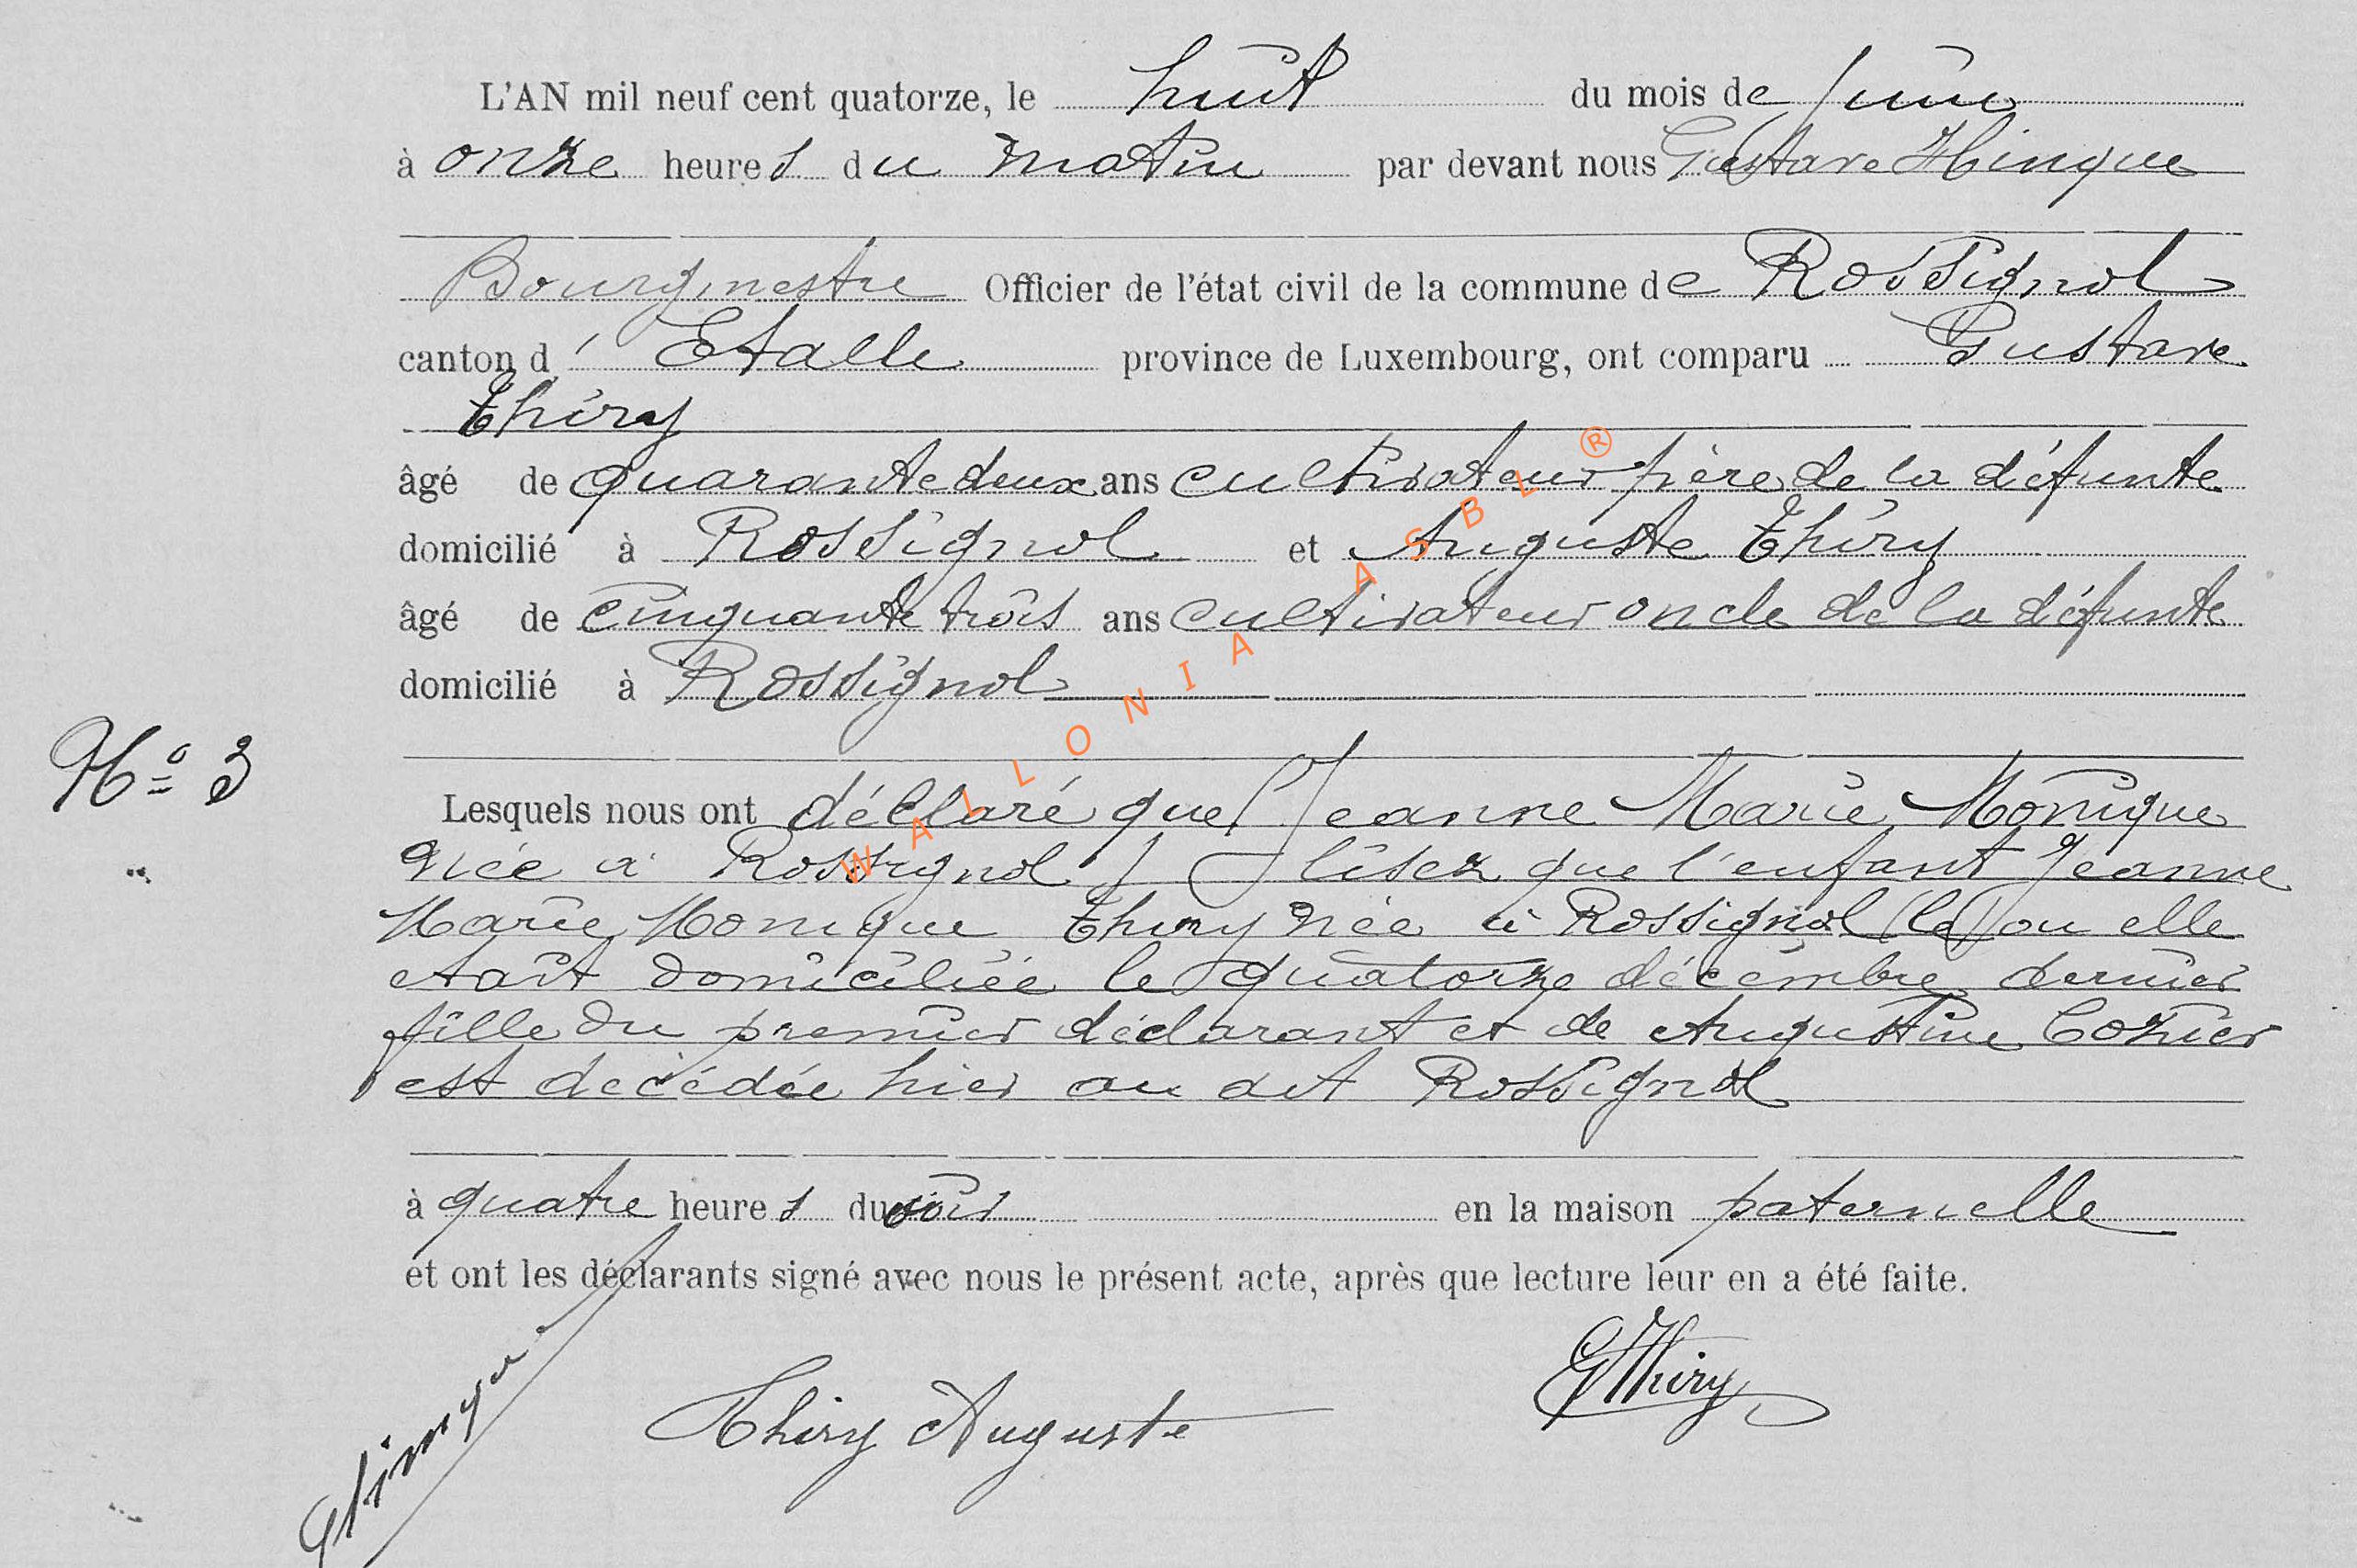 L'AN mil neuf cent quatorze, le huit du mois de juin
à onze heures du matin par devant nous Gustave Hinque
Bourgmestre Officier de l'état civil de la commune de Rossignol
canton d'Etalle province de Luxembourg, ont comparu Gustave
Thiry
âgé de quarante deux ans cultivateur père de la défunte
domicilié à Rossignol et Auguste Thiry
âgé de cinquante trois ans cultivateur oncle de la défunte
domicilié à Rossignol
N° 3
Lesquels nous ont déclaré que ( Jeanne Marie Monique
née à Rossignol ) lisez que l'enfant Jeanne
Marie Monique Thiry née à Rossignol (la) ou elle
etait domiciliée le quatorze décembre dernier
fille du premier déclarant et de Augustine Cozier
est decédée hier au dit Rossignol
à quatre heures du soir en la maison paternelle
et ont les déclarants signé avec nous le présent acte, après que lecture leur en a été faite.
GThiry
Thiry Auguste
GHinque
WALLONIA ASBL ®